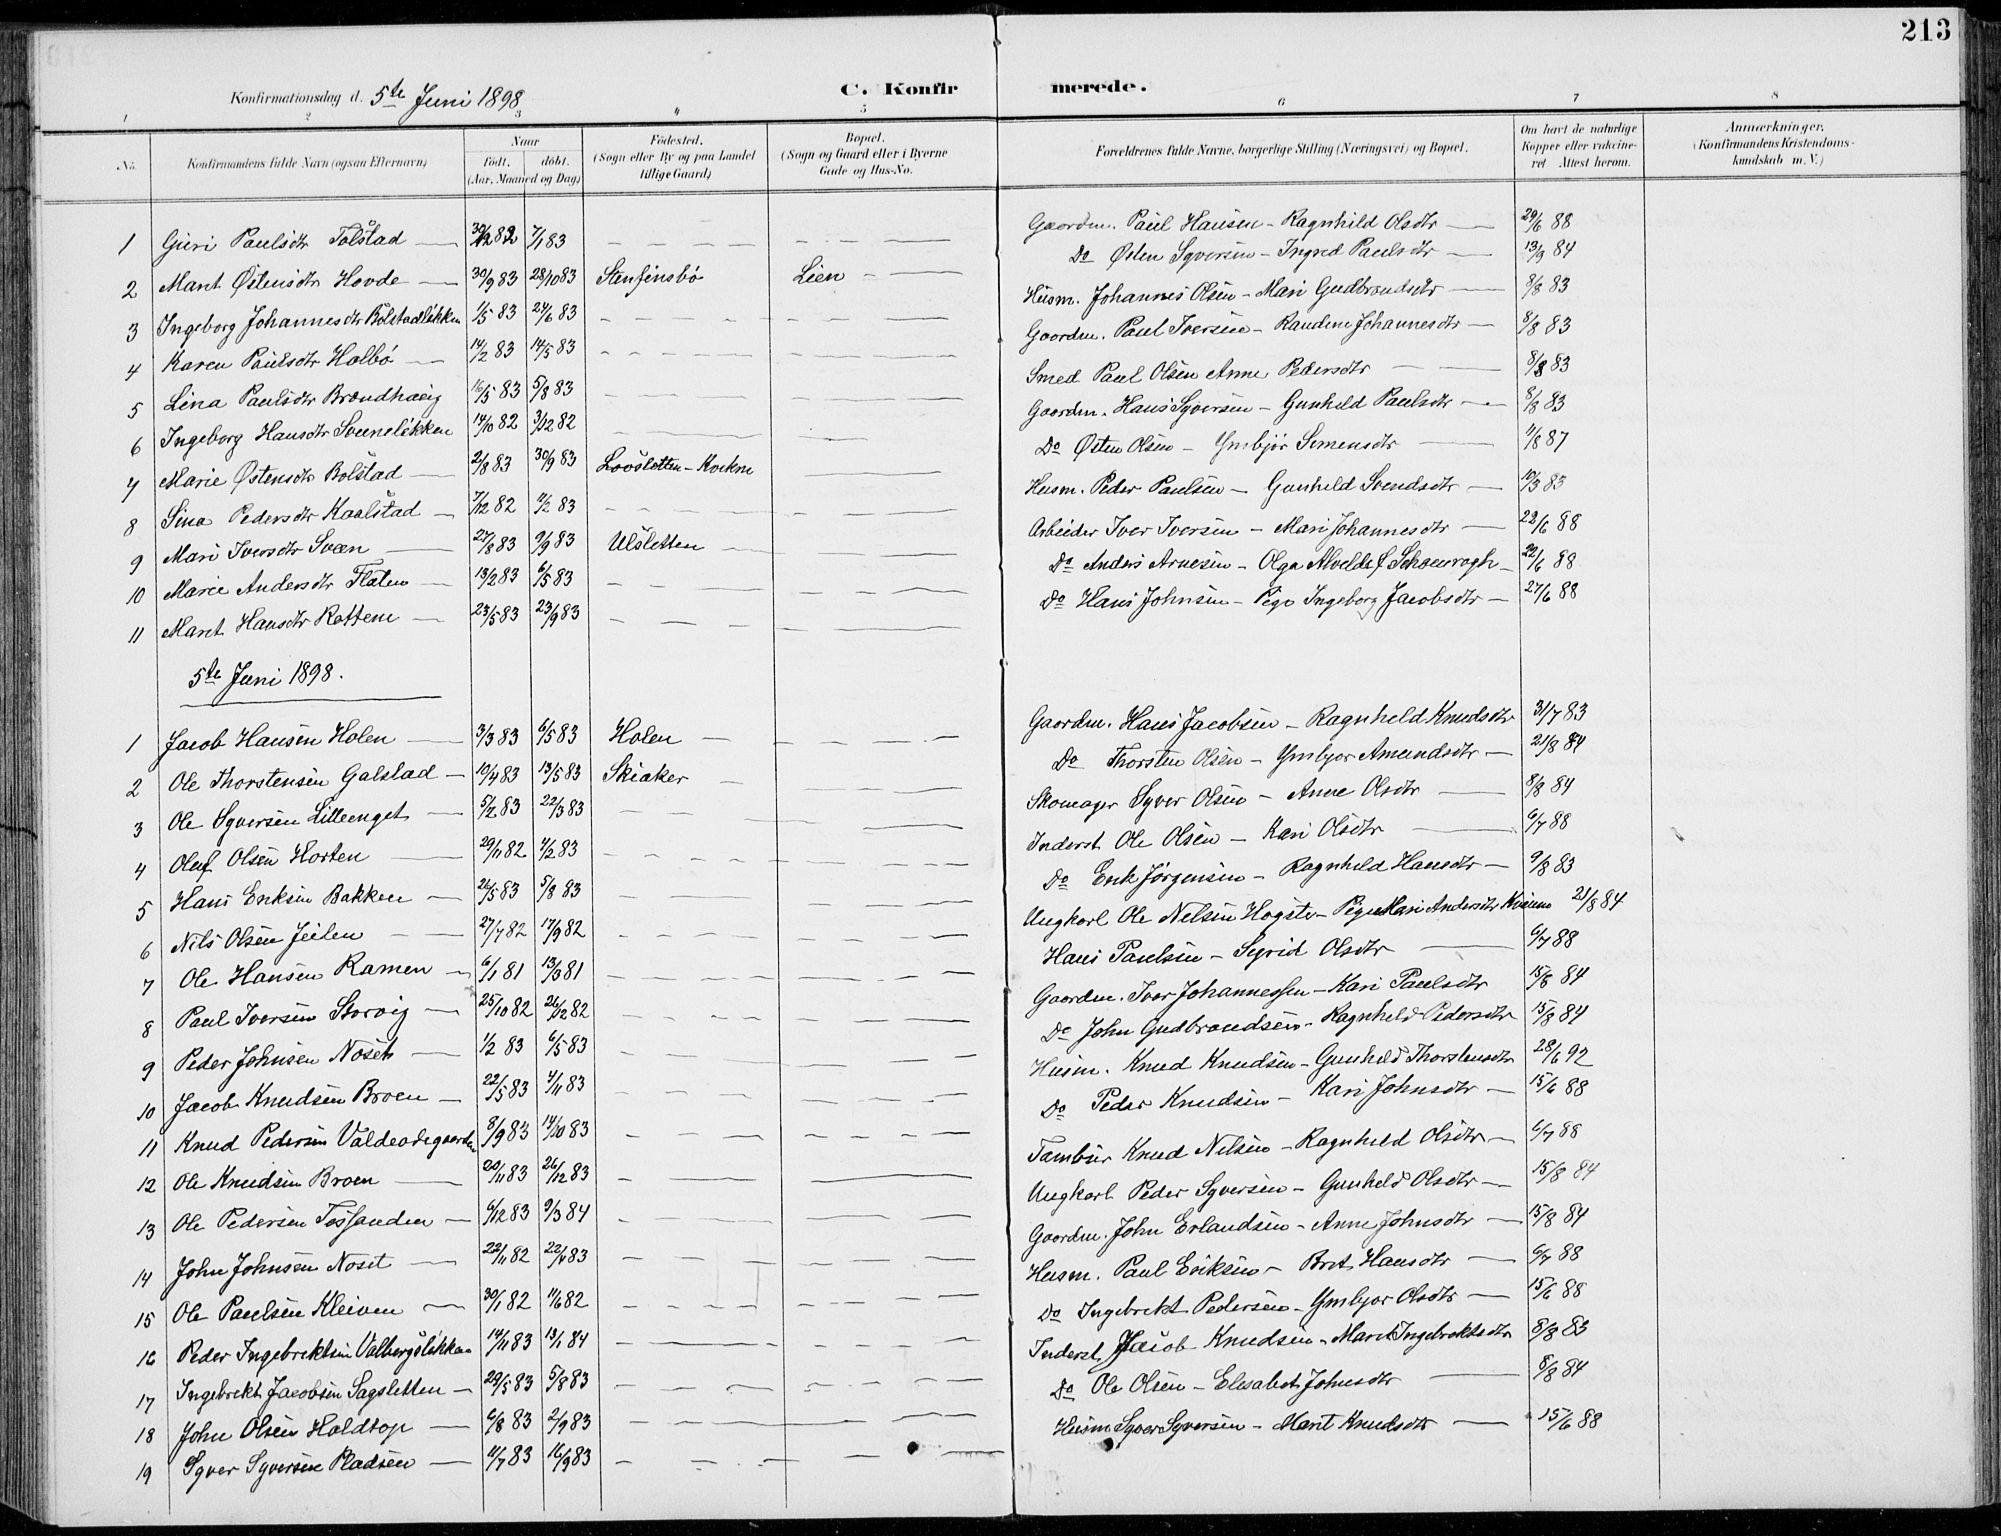 213
Konfirmationsdag d. 5te Juni 1898
C. Konfirmerede.
1 2 3 4 5 6 7 8
No.
Konfirmandens fulde Navn (ogsaa Efternavn)
Naar født. døbt. (Aar, Maaned og Dag)
Fødested. (Sogn eller By og paa Landet tillige Gaard)
Bopæl. (Sogn og Gaard eller i Byerne Gade og Hus-No.
Forældrenes fulde Navne, borgerlige Stilling (Næringsvei) og Bopæl.
Om havt de naturlige Kopper eller vakcineret. Attest herom.
Anmærkninger. (Konfirmandens Kristendomskundskab m. V.)
1 Guri Paulsdtr Tolstad 30/12 82 7/1 83 Gaardm. Paul Hansen - Ragnhild Olsdtr 29/6 88
2 Marit Østensdtr Hovde 30/9 83 28/10 83 Stenfinsbø Lien Do Østen Syversen - Ingrid Paulsdtr 13/9 84
3 Ingeborg Johannesdtr Bolstadløkken 1/5 83 24/6 83 Husm. Johannes Olsen - Mari Gudbrandsdtr 8/8 83
4 Karen Paulsdtr Holbø 14/2 83 14/5 83 Gaardm. Paul Iversen - Randine Johannesdtr 8/8 83
5 Lina Paulsdtr Brændhaug 16/5 83 5/8 83 Smed Paul Olsen Anne Pedersdtr 8/8 83
6 Ingeborg Hansdtr Sveneløkken 14/10 82 3/12 82 Gaardm. Hans Syversen - Gunhild Paulsdtr 8/8 83
7 Marie Østensdtr Bolstad 2/8 83 30/9 83 Lovsletten - Kvikne Do Østen Olsen - Ymbjør Simensdtr 11/8 87
8 Sina Pedersdtr Kaalstad 7/12 82 11/2 83 Husm. Peder Paulsen - Gunhild Svendsdtr 10/3 83
9 Mari Iversdtr Sveen 27/8 83 9/9 83 Ulsletten Arbeider Iver Iversen - Mari Johannesdtr 22/6 88
10 Marie Andersdtr Flaten 13/2 83 6/5 83 Do Anders Arnesen - Olga Alvelde f 22/6 88
11 Marit Hansdtr Rottem 23/5 83 23/9 83 Do Hans Johnsen - Pige Ingeborg Jacobsdtr 27/6 88
5te Juni 1898.
1 Jacob Hansen Holen 3/3 83 6/5 83 Holen Gaardm. Hans Jacobsen - Ragnhild Knudsdtr 31/7 83
2 Ole Thorstensen Galstad 10/4 83 13/5 83 Skiaker Do Thorsten Olsen - Ymbjor Amundsdtr 21/8 84
3 Ole Syversen Lilleenget 5/2 83 22/3 83 Skomager Syver Olsen - Anne Olsdtr 8/8 84
4 Oluf Olsen Horten 29/11 82 4/2 83 Inderst Ole Olsen - Kari Olsdtr 6/7 88
5 Hans Eriksen Bakken 26/5 83 5/8 83 Do Erik Jørgensen - Ragnhild Hansdtr 9/8 83
6 Nils Olsen Jeilen 27/7 82 17/9 82 Ungkarl Ole Nelsen Hogste - Pige Mari Andersdtr 21/8 84
7 Ole Hansen Ramen 6/1 81 13/3 81 Hans Paulsen - Sigrid Olsdtr 6/7 88
8 Paul Iversen Storvig 25/10 82 26/12 82 Gaardm. Iver Johannessen - Kari Paulsdtr 15/8 84
9 Peder Johnsen Noset 1/2 83 6/5 83 Do John Gudbrandsen - Ragnhild Pedersdtr 15/8 84
10 Jacob Knudsen Broen 22/5 83 4/11 83 Husm. Knud Knudsen - Gunhild Thorstensdtr 28/6 92
11 Knud Pedersen Valdeødegaarden 8/9 83 14/10 83 Do Peder Knudsen - Kari Johnsdtr 15/6 88
12 Ole Knudsen Broen 20/11 83 26/12 83 Tambur Knud Nilsen - Ragnhild Olsdtr 6/7 88
13 Ole Pedersen Tossanden 6/12 83 9/3 84 Ungkarl Peder Syversen - Gunhild Olsdtr 15/8 84
14 John Johnsen Noset 22/11 82 22/4 83 Gaardm. John Erlandsen - Anne Johnsdtr 15/8 84
15 Ole Paulsen Kleiven 30/1 82 11/6 82 Husm. Paul Eriksen - Brit Hansdtr 6/7 88
16 Peder Ingebrektsen Valbergsløkken 14/11 83 13/1 84 Do Ingebrekt Pedersen - Ymbjor Olsdtr 15/6 88
17 Ingebrekt Jacobsen Sagsletten 29/5 83 5/8 83 Inderst Jacob Knudsen - Marit Ingebrektsdtr 8/8 83
18 John Olsen Holdtop 6/8 83 2/9 83 Do Ole Olsen - Elisabet Johnsdtr 8/8 84
19 Syver Syversen Pladsen 11/7 83 16/9 83 Husm Syver Syversen - Marit Knudsdtr 15/6 88